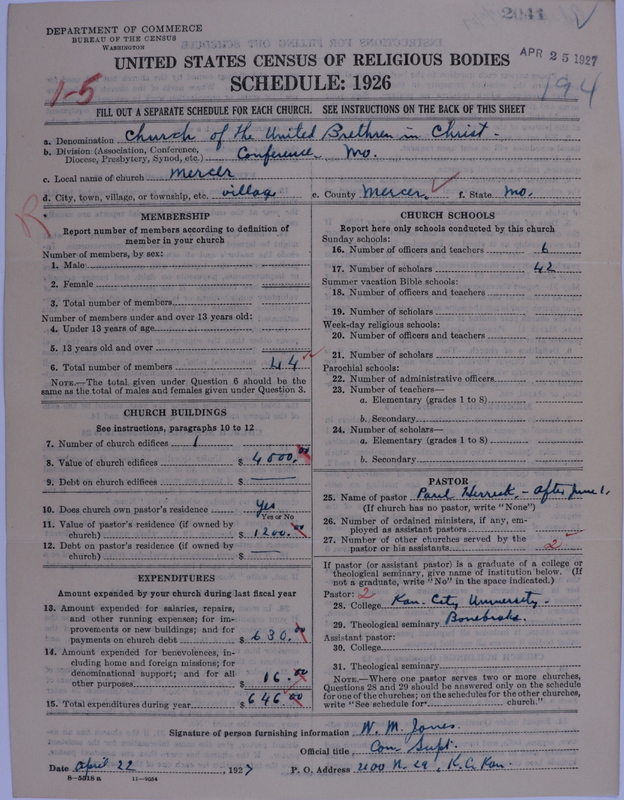 DEPARTMENT OF COMMERCE
BUREAU OF THE CENSUS
WASHINGTON
2941
APR 25 1927
UNITED STATES CENSUS OF RELIGIOUS BODIES
SCHEDULE: 1926
1-5
194
FILL OUT A SEPARATE SCHEDULE FOR EACH CHURCH. SEE INSTRUCTIONS ON THE BACK OF THIS SHEET
a. Denomination Church of the United Brethren in Christ -
b. Division (Association, Conference, Diocese, Presbytery, Synod, etc.) Conference Mo.
c. Local name of church Mercer
d. City, town, village, or township, etc. village e. County Mercer. f. State Mo.
R
MEMBERSHIP
Report number of members according to definition of
member in your church
Number of members, by sex:
1. Male
2. Female
3. Total number of members
Number of members under and over 13 years old:
4. Under 13 years of age
5. 13 years old and over
6. Total number of members 44
NOTE.—The total given under Question 6 should be the
same as the total of males and females given under Question 3.
CHURCH BUILDINGS
See instructions, paragraphs 10 to 12
7. Number of church edifices 1
8. Value of church edifices $ 4000.00
9. Debt on church edifices $ —
10. Does church own pastor's residence Yes
Yes or No
11. Value of pastor's residence (if owned by
church) $ 1200.00
12. Debt on pastor's residence (if owned by
church) $ —
EXPENDITURES
Amount expended by your church during last fiscal year
13. Amount expended for salaries, repairs,
and other running expenses; for im-
provements or new buildings; and for
payments on church debt $ 630.00
14. Amount expended for benevolences, in-
cluding home and foreign missions; for
denominational support; and for all
other purposes $ 16.00
15. Total expenditures during year $ 646.00
CHURCH SCHOOLS
Report here only schools conducted by this church
Sunday schools:
16. Number of officers and teachers 6
17. Number of scholars 42
Summer vacation Bible schools:
18. Number of officers and teachers
19. Number of scholars
Week-day religious schools:
20. Number of officers and teachers
21. Number of scholars
Parochial schools:
22. Number of administrative officers
23. Number of teachers—
a. Elementary (grades 1 to 8)
b. Secondary
24. Number of scholars—
a. Elementary (grades 1 to 8)
b. Secondary
PASTOR
25. Name of pastor Paul Herrick - After June 1.
(If church has no pastor, write "None")
26. Number of ordained ministers, if any, em-
ployed as assistant pastors
27. Number of other churches served by the
pastor or his assistants 2
If pastor (or assistant pastor) is a graduate of a college or
theological seminary, give name of institution below. (If
not a graduate, write "No" in the space indicated.)
Pastor: 2
28. College Kan. City University.
29. Theological seminary Bonebrake.
Assistant pastor:
30. College
31. Theological seminary
NOTE.—Where one pastor serves two or more churches,
Questions 28 and 29 should be answered only on the schedule
for one of the churches; on the schedules for the other churches,
write "See schedule for church."
Signature of person furnishing information W. M. Jones.
Official title Con. Supt.
Date April 22, 1927 P. O. Address 2100 N. 29, K.C. Kan.
8-5318 a 11-9054